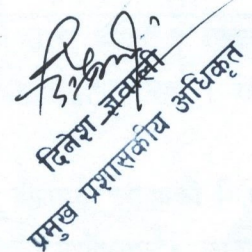 दिनेश ज्ञवाली
प्रमुख प्रशासकीय अधिकृत